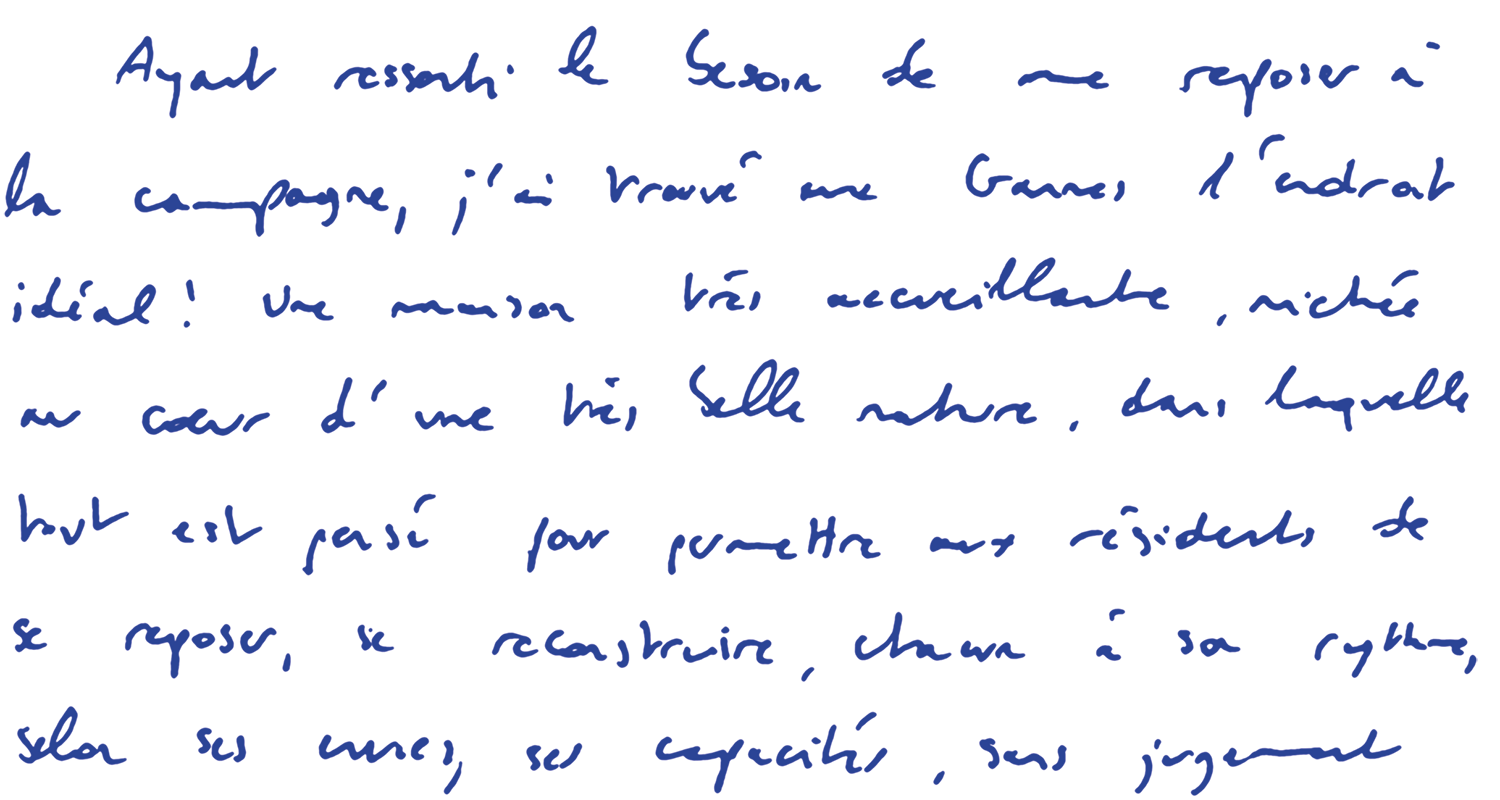 Ayant ressenti le besoin de me reposer à
la campagne, j'ai trouvé une l'endroit
idéal! Une maison très accueillante, nichée
au cœur d'une très belle nature, dans laquelle
tout est pensé pour permettre aux résidents de
se reposer, se reconstruire, chacun à son rythme,
selon ses envies, ses capacités, sans jugement